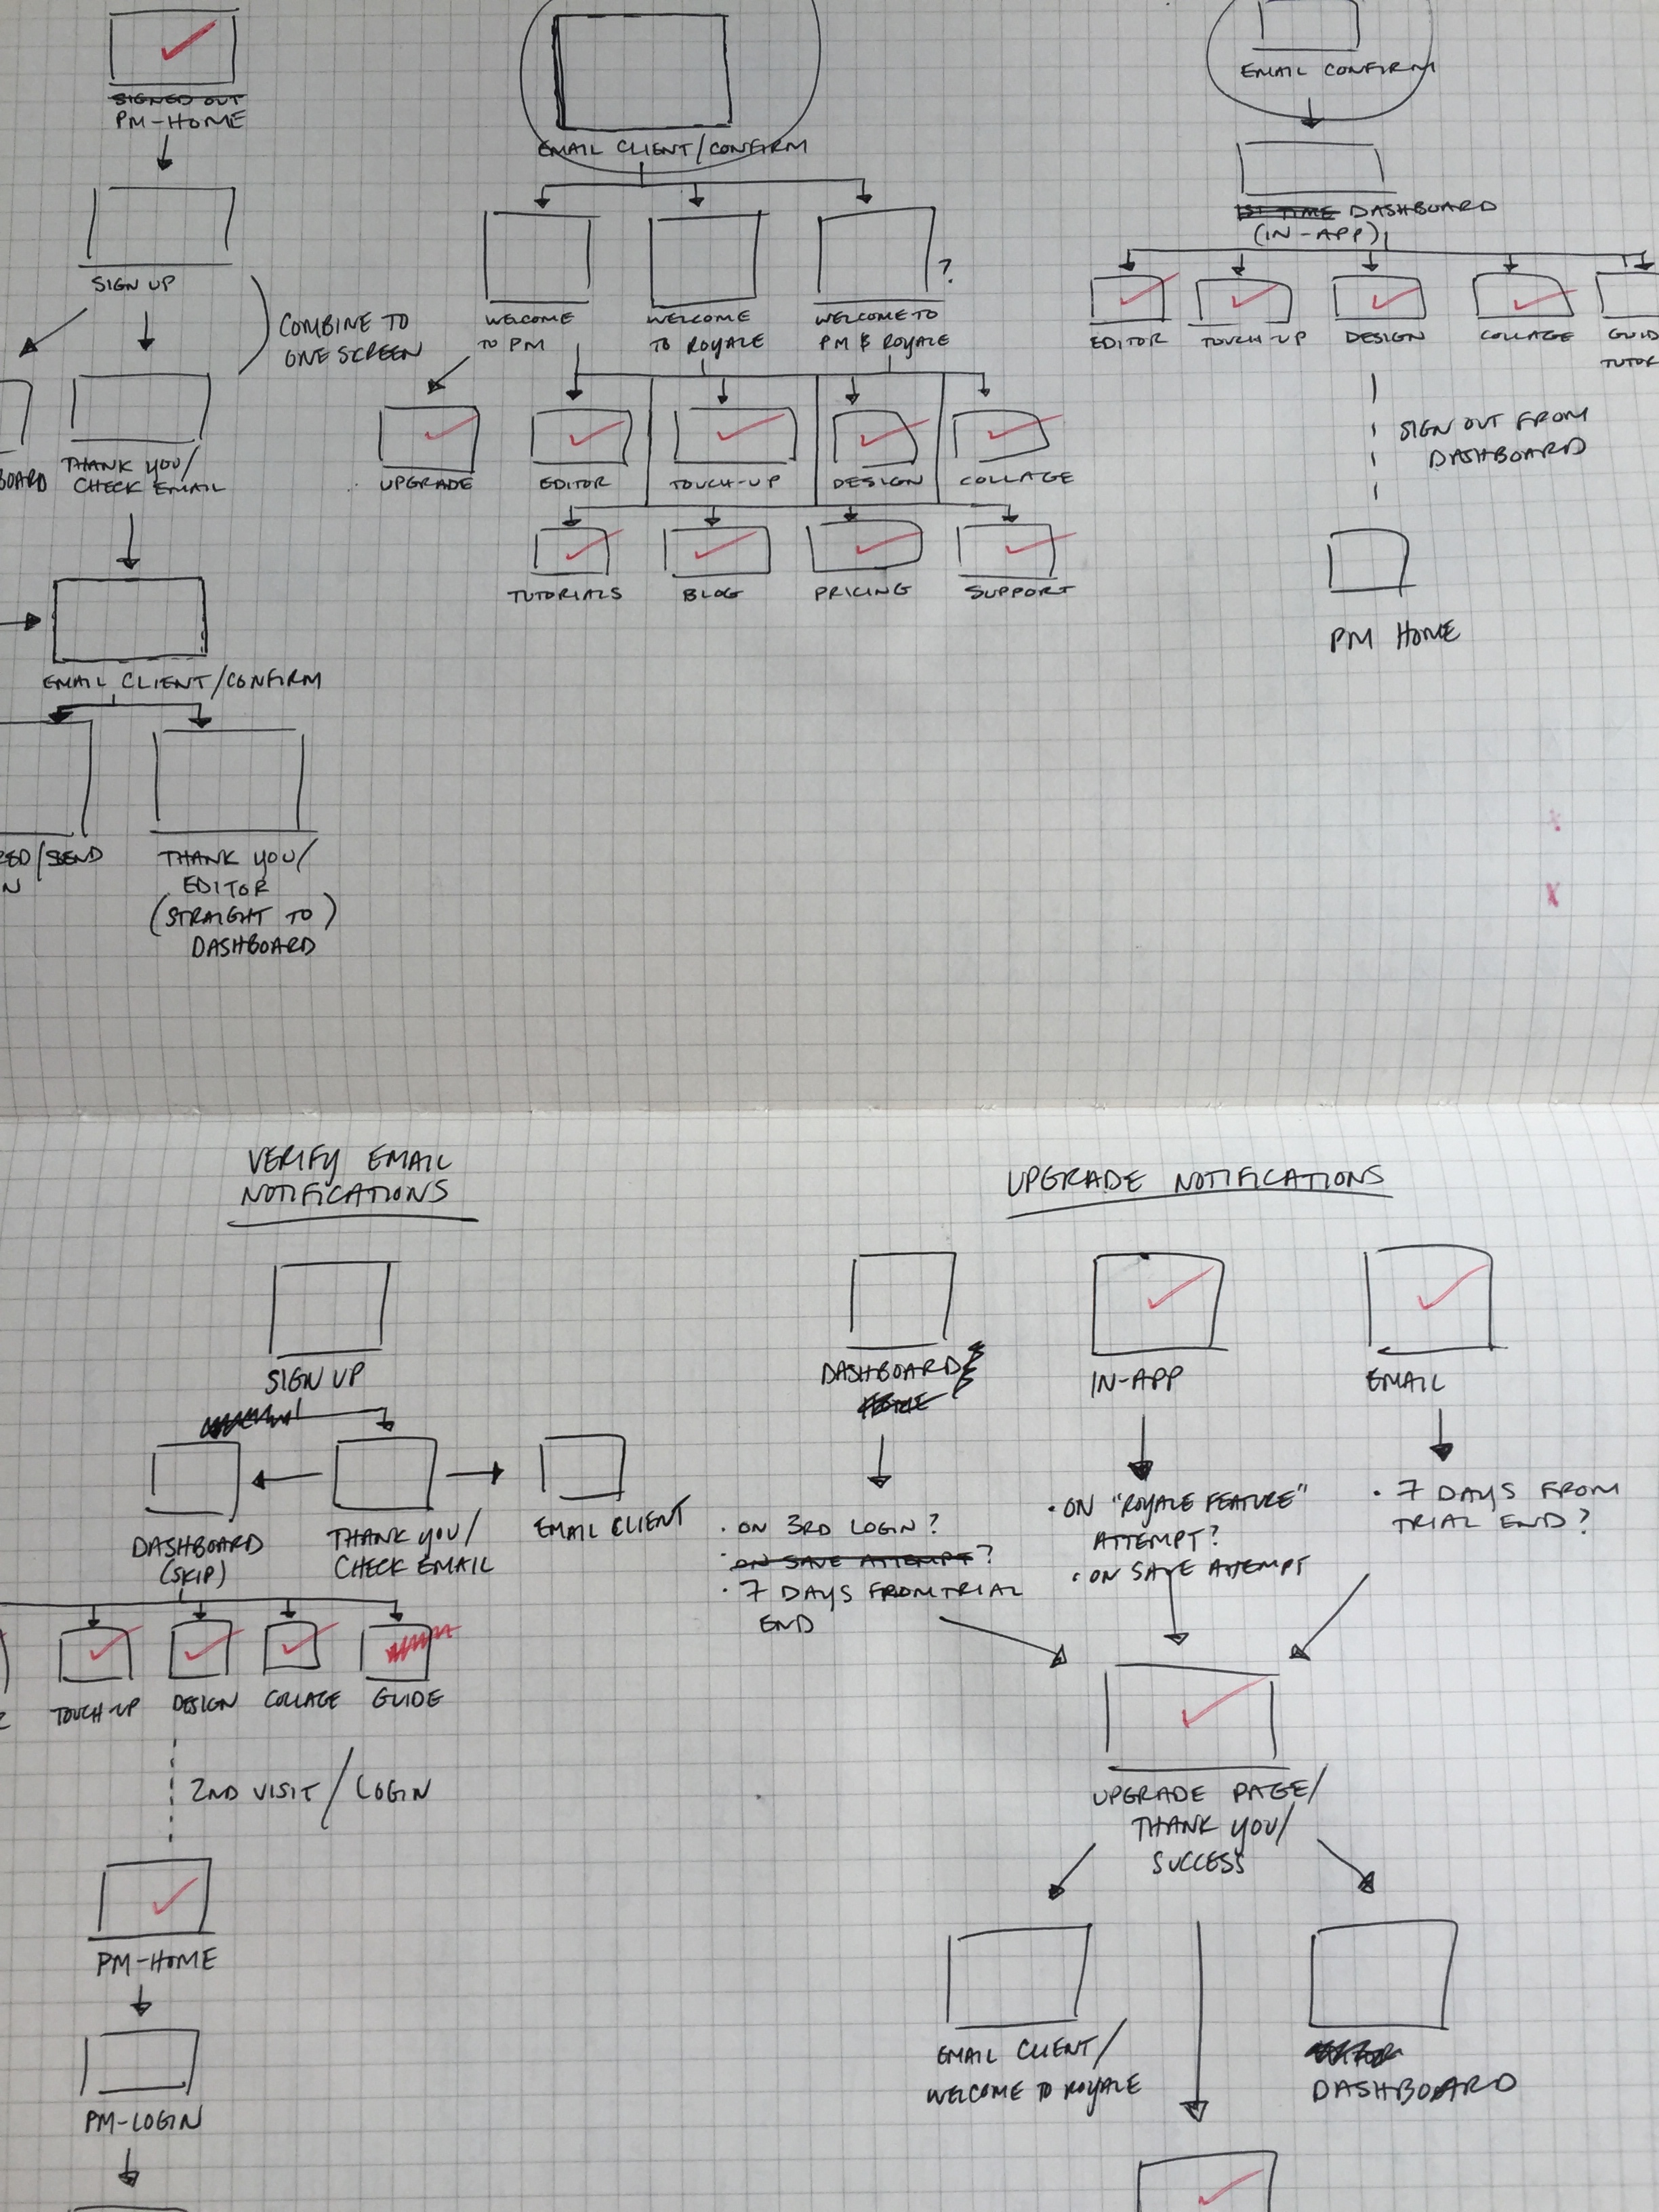 SIGNED OUT
PM-HOME
SIGN UP
COMBINE TO
ONE SCREEN
BOARD
THANK YOU/
CHECK EMAIL
EMAIL CLIENT/CONFIRM
/SEND
N
THANK YOU/
EDITOR
(STRAIGHT TO)
DASHBOARD
EMAIL CLIENT/CONFIRM
?
WELCOME
TO PM
WELCOME
TO ROYALE
WELCOME TO
PM & ROYALE
UPGRADE
EDITOR
TOUCH-UP
DESIGN
COLLAGE
TUTORIALS
BLOG
PRICING
SUPPORT
EMAIL CONFIRM
1ST TIME DASHBOARD
(IN-APP)
EDITOR
TOUCH-UP
DESIGN
COLLAGE
GUID
TUTOR
SIGN OUT FROM
DASHBOARD
PM HOME
VERIFY EMAIL
NOTIFICATIONS
SIGN UP
DASHBOARD
(SKIP)
THANK YOU/
CHECK EMAIL
EMAIL CLIENT
TOUCH-UP
DESIGN
COLLAGE
GUIDE
2ND VISIT/LOGIN
PM-HOME
PM-LOGIN
UPGRADE NOTIFICATIONS
DASHBOARD
IN-APP
EMAIL
• ON 3RD LOGIN?
• ON SAVE ATTEMPT?
• 7 DAYS FROM TRIAL
END
• ON "ROYALE FEATURE"
ATTEMPT?
• ON SAVE ATTEMPT
• 7 DAYS FROM
TRIAL END?
UPGRADE PAGE/
THANK YOU/
SUCCESS
EMAIL CLIENT/
WELCOME TO ROYALE
DASHBOARD